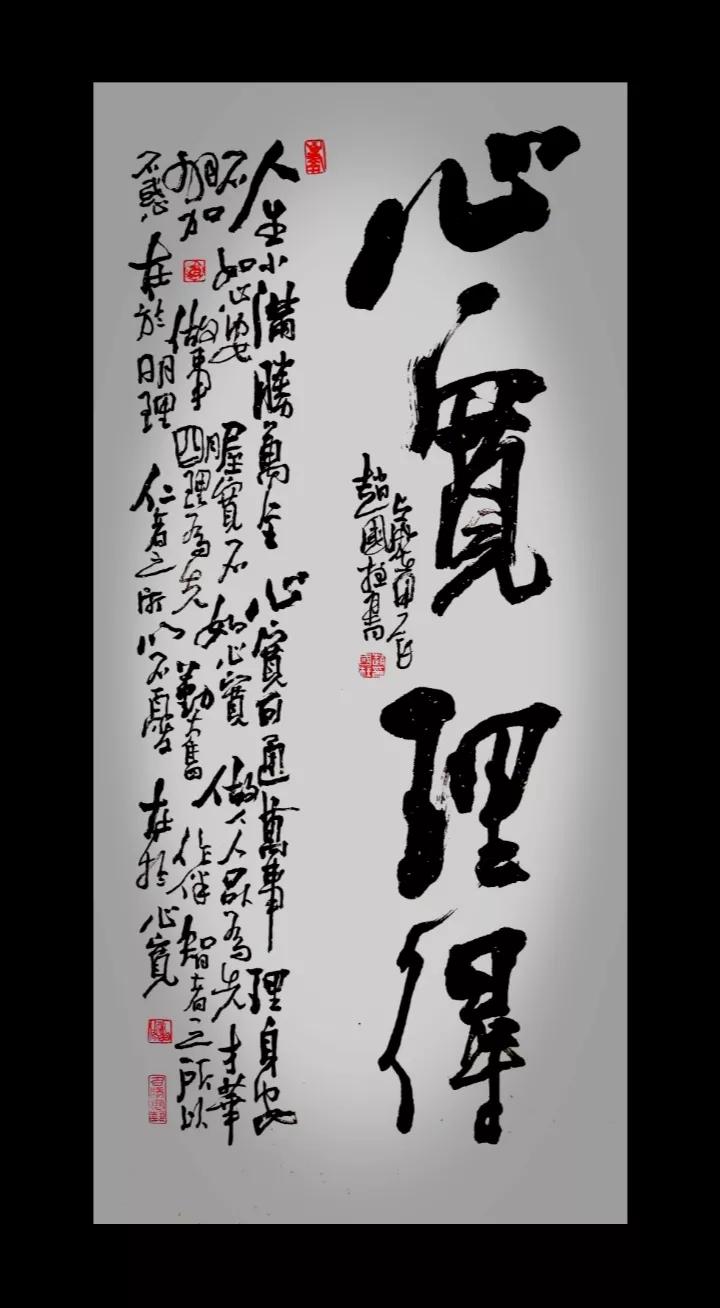 心寬理得
趙國柱書
人生小滿勝萬全 心寬百通萬事理 身安
不如心安 屋寬不如心寬 做人人品為先 才華
相加 做事明理為先 勤奮作伴 智者之所以
不惑 在於明理 仁者之所以不憂 在於心寬